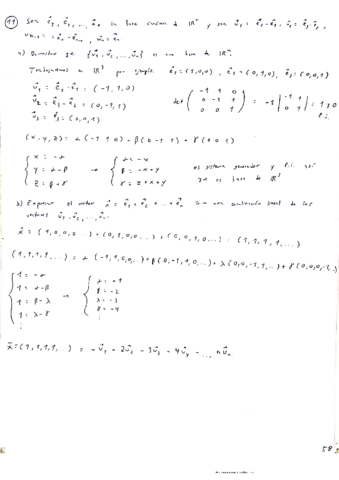 11 Sea e⃗₁, e⃗₂, ..., e⃗ₙ la base canónica de ℝⁿ y sea u⃗₁ = e⃗₂ - e⃗₁, u⃗₂ = e⃗₃ - e⃗₂,
uₙ₋₁ = eₙ - eₙ₋₁, u⃗ₙ = e⃗ₙ
a) Demostrar que {u⃗₁, u⃗₂, ..., u⃗ₙ} es una base de ℝⁿ.
Trabajamos en ℝ³ por ejemplo. e⃗₁ = (1,0,0), e⃗₂ = (0,1,0), e⃗₃ = (0,0,1)
u⃗₁ = e⃗₂ - e⃗₁ = (-1,1,0)
u⃗₂ = e⃗₃ - e⃗₂ = (0,-1,1)
u⃗₃ = e⃗₃ = (0,0,1)
det (-1 1 0 / 0 -1 1 / 0 0 1) = -1 |-1 1 / 0 1| = 1 ≠ 0 l.i.
(x,y,z) = α(-1 1 0) + β(0 -1 1) + γ(0 0 1)
{ x = -α
y = α-β
z = β+γ
→
{ α = -x
β = -x-y
γ = z+x+y
es sistema generador y l.i. así
que es base de ℝ³
b) Expresar el vector x⃗ = e⃗₁ + e⃗₂ + ... + e⃗ₙ como una combinación lineal de los
vectores u⃗₁, u⃗₂, ..., u⃗ₙ.
x⃗ = (1,0,0,0...) + (0,1,0,0...) + (0,0,1,0...) = (1,1,1,1,...)
(1,1,1,1,...) = α(-1,1,0,0...) + β(0,-1,1,0,..) + λ(0,0,-1,1,..) + γ(0,0,0,-1,..)
{ 1 = -α
1 = α-β
1 = β-λ
1 = λ-γ
⋮
→
{ α = -1
β = -2
λ = -3
γ = -4
⋮
x⃗ = (1,1,1,1,..) = -u⃗₁ - 2u⃗₂ - 3u⃗₃ - 4u⃗₄ - ... nu⃗ₙ
58